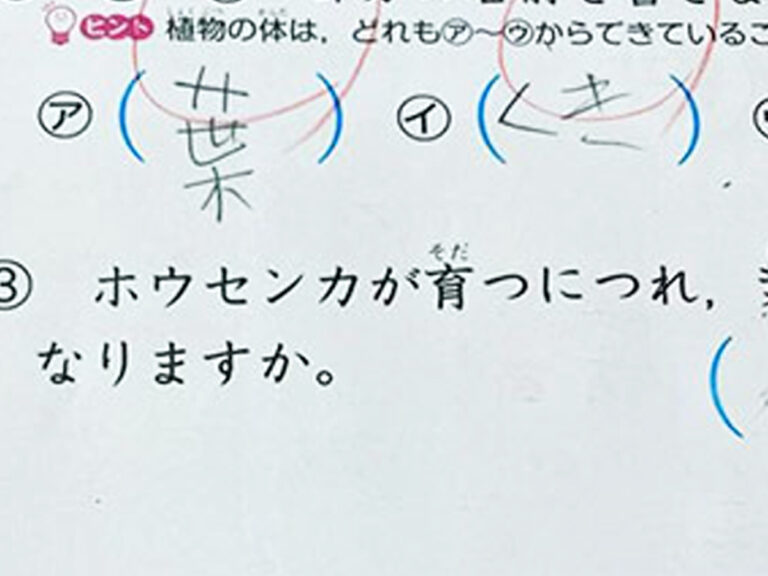 ヒント 植物の体は，どれも㋐〜㋒からできているこ
㋐（葉） ㋑（くき）
③ ホウセンカが育つにつれ，
そだ
なりますか。 （